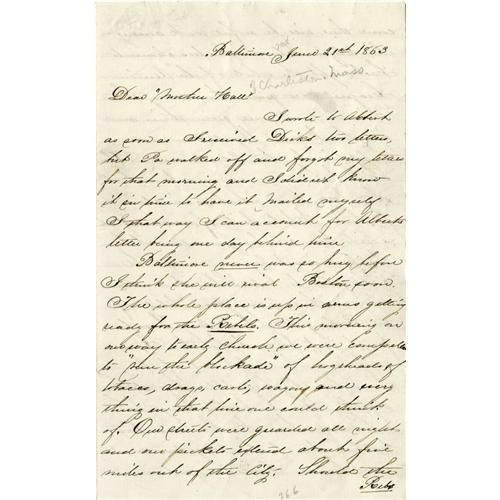 Baltimore June 21st 1863
of Charleston Mass.
Dear "Mother Hall"
I wrote to Albert
as soon as I received Dick's two letters,
but Pa walked off and forgot my letter
for that morning and I didn't know
it in time to have it Mailed myself
I that way I can account for Alberts
letter being one day behind time
Baltimore never was so busy before
I think she will rival Boston soon.
The whole place is up in arms getting
ready for the Rebels. This morning on
our way to early church we were compelled
to "run the blockade" of hogsheads of
tobacco, drays, carts, wagons and every
thing in that line one could think
of. Our streets were guarded all night
and our pickets extend about five
miles out of the City. Should the
Rebs
366